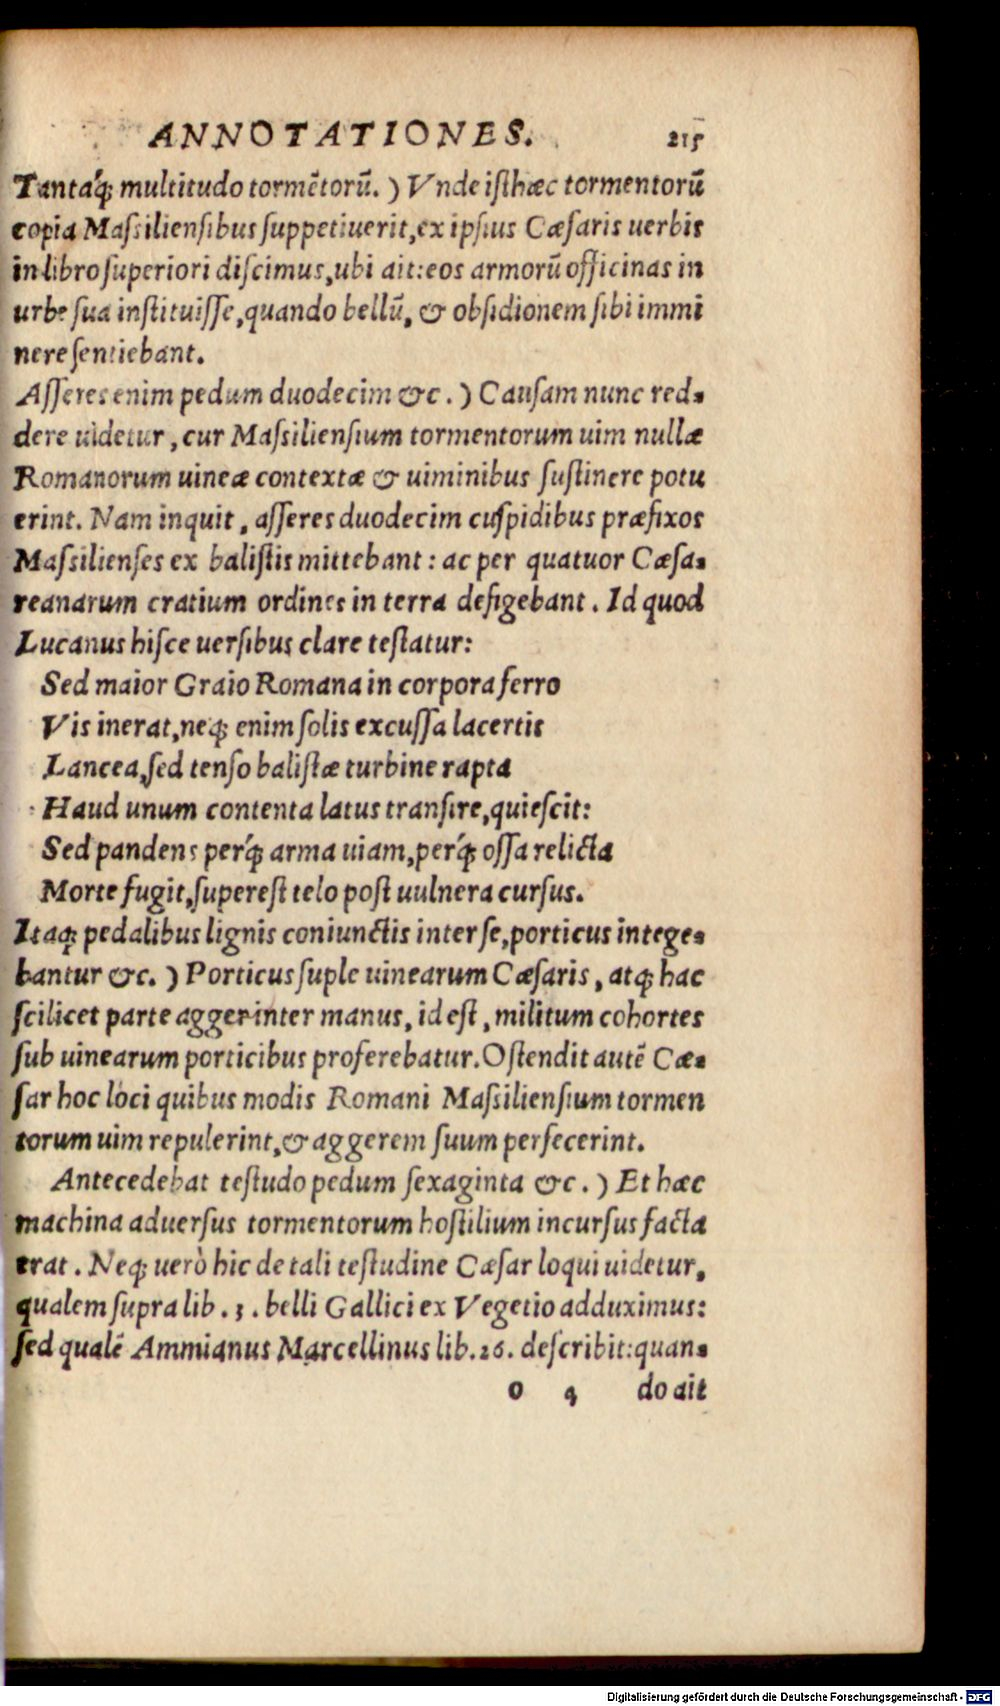 ANNOTATIONES. 215
Tantáq; multitudo tormẽtorũ.) Vnde isthæc tormentorũ
copia Massiliensibus suppetiuerit, ex ipsius Cæsaris uerbis
in libro superiori discimus, ubi ait: eos armorũ officinas in
urbe sua instituisse, quando bellũ, & obsidionem sibi immi
nere sentiebant.
Asseres enim pedum duodecim &c.) Causam nunc red-
dere uidetur, cur Massiliensium tormentorum uim nullæ
Romanorum uineæ contextæ & uiminibus sustinere potu
erint. Nam inquit, asseres duodecim cuspidibus præfixos
Massilienses ex balistis mittebant: ac per quatuor Cæsa-
reanarum cratium ordines in terra defigebant. Id quod
Lucanus hisce uersibus clare testatur:
Sed maior Graio Romana in corpora ferro
Vis inerat, neq; enim solis excussa lacertis
Lancea, sed tenso balistæ turbine rapta
Haud unum contenta latus transire, quiescit:
Sed pandens perq́; arma uiam, perq́; ossa relicta
Morte fugit, superest telo post uulnera cursus.
Itaq; pedalibus lignis coniunctis inter se, porticus intege-
bantur &c.) Porticus suple uinearum Cæsaris, atq; hac
scilicet parte agger inter manus, id est, militum cohortes
sub uinearum porticibus proferebatur. Ostendit autẽ Cæ-
sar hoc loci quibus modis Romani Massiliensium tormen
torum uim repulerint, & aggerem suum perfecerint.
Antecedebat testudo pedum sexaginta &c.) Et hæc
machina aduersus tormentorum hostilium incursus facta
erat. Neq; uerò hic de tali testudine Cæsar loqui uidetur,
qualem supra lib. 3. belli Gallici ex Vegetio adduximus:
sed qualẽ Ammianus Marcellinus lib. 26. describit: quan-
o 4 do ait
Digitalisierung gefördert durch die Deutsche Forschungsgemeinschaft - DFG